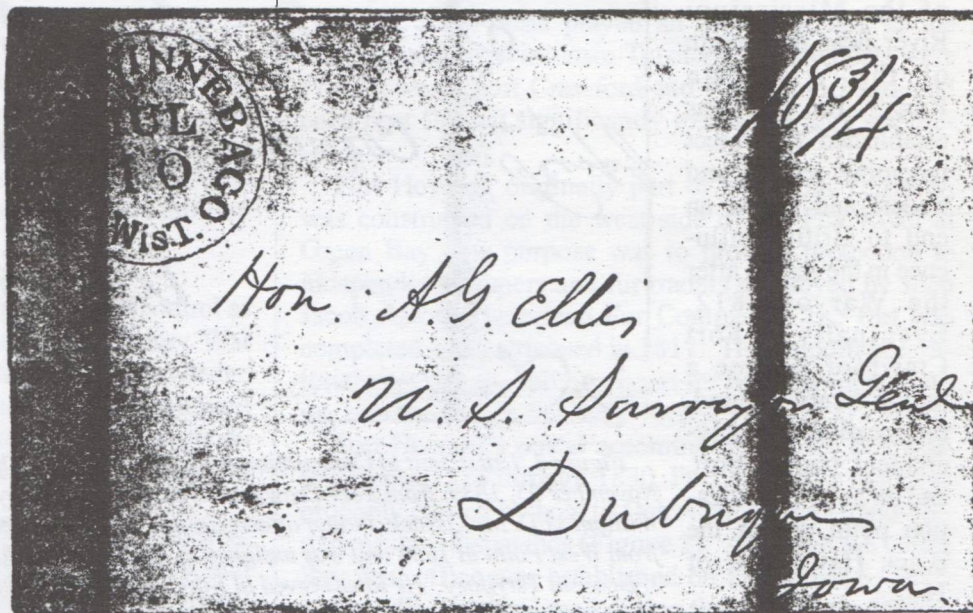 WINNEBAGO
JUL
10
WisT.
18 3/4
Hon. A.G. Elles
U. S. Surveyor Genl
Dubuque
Iowa